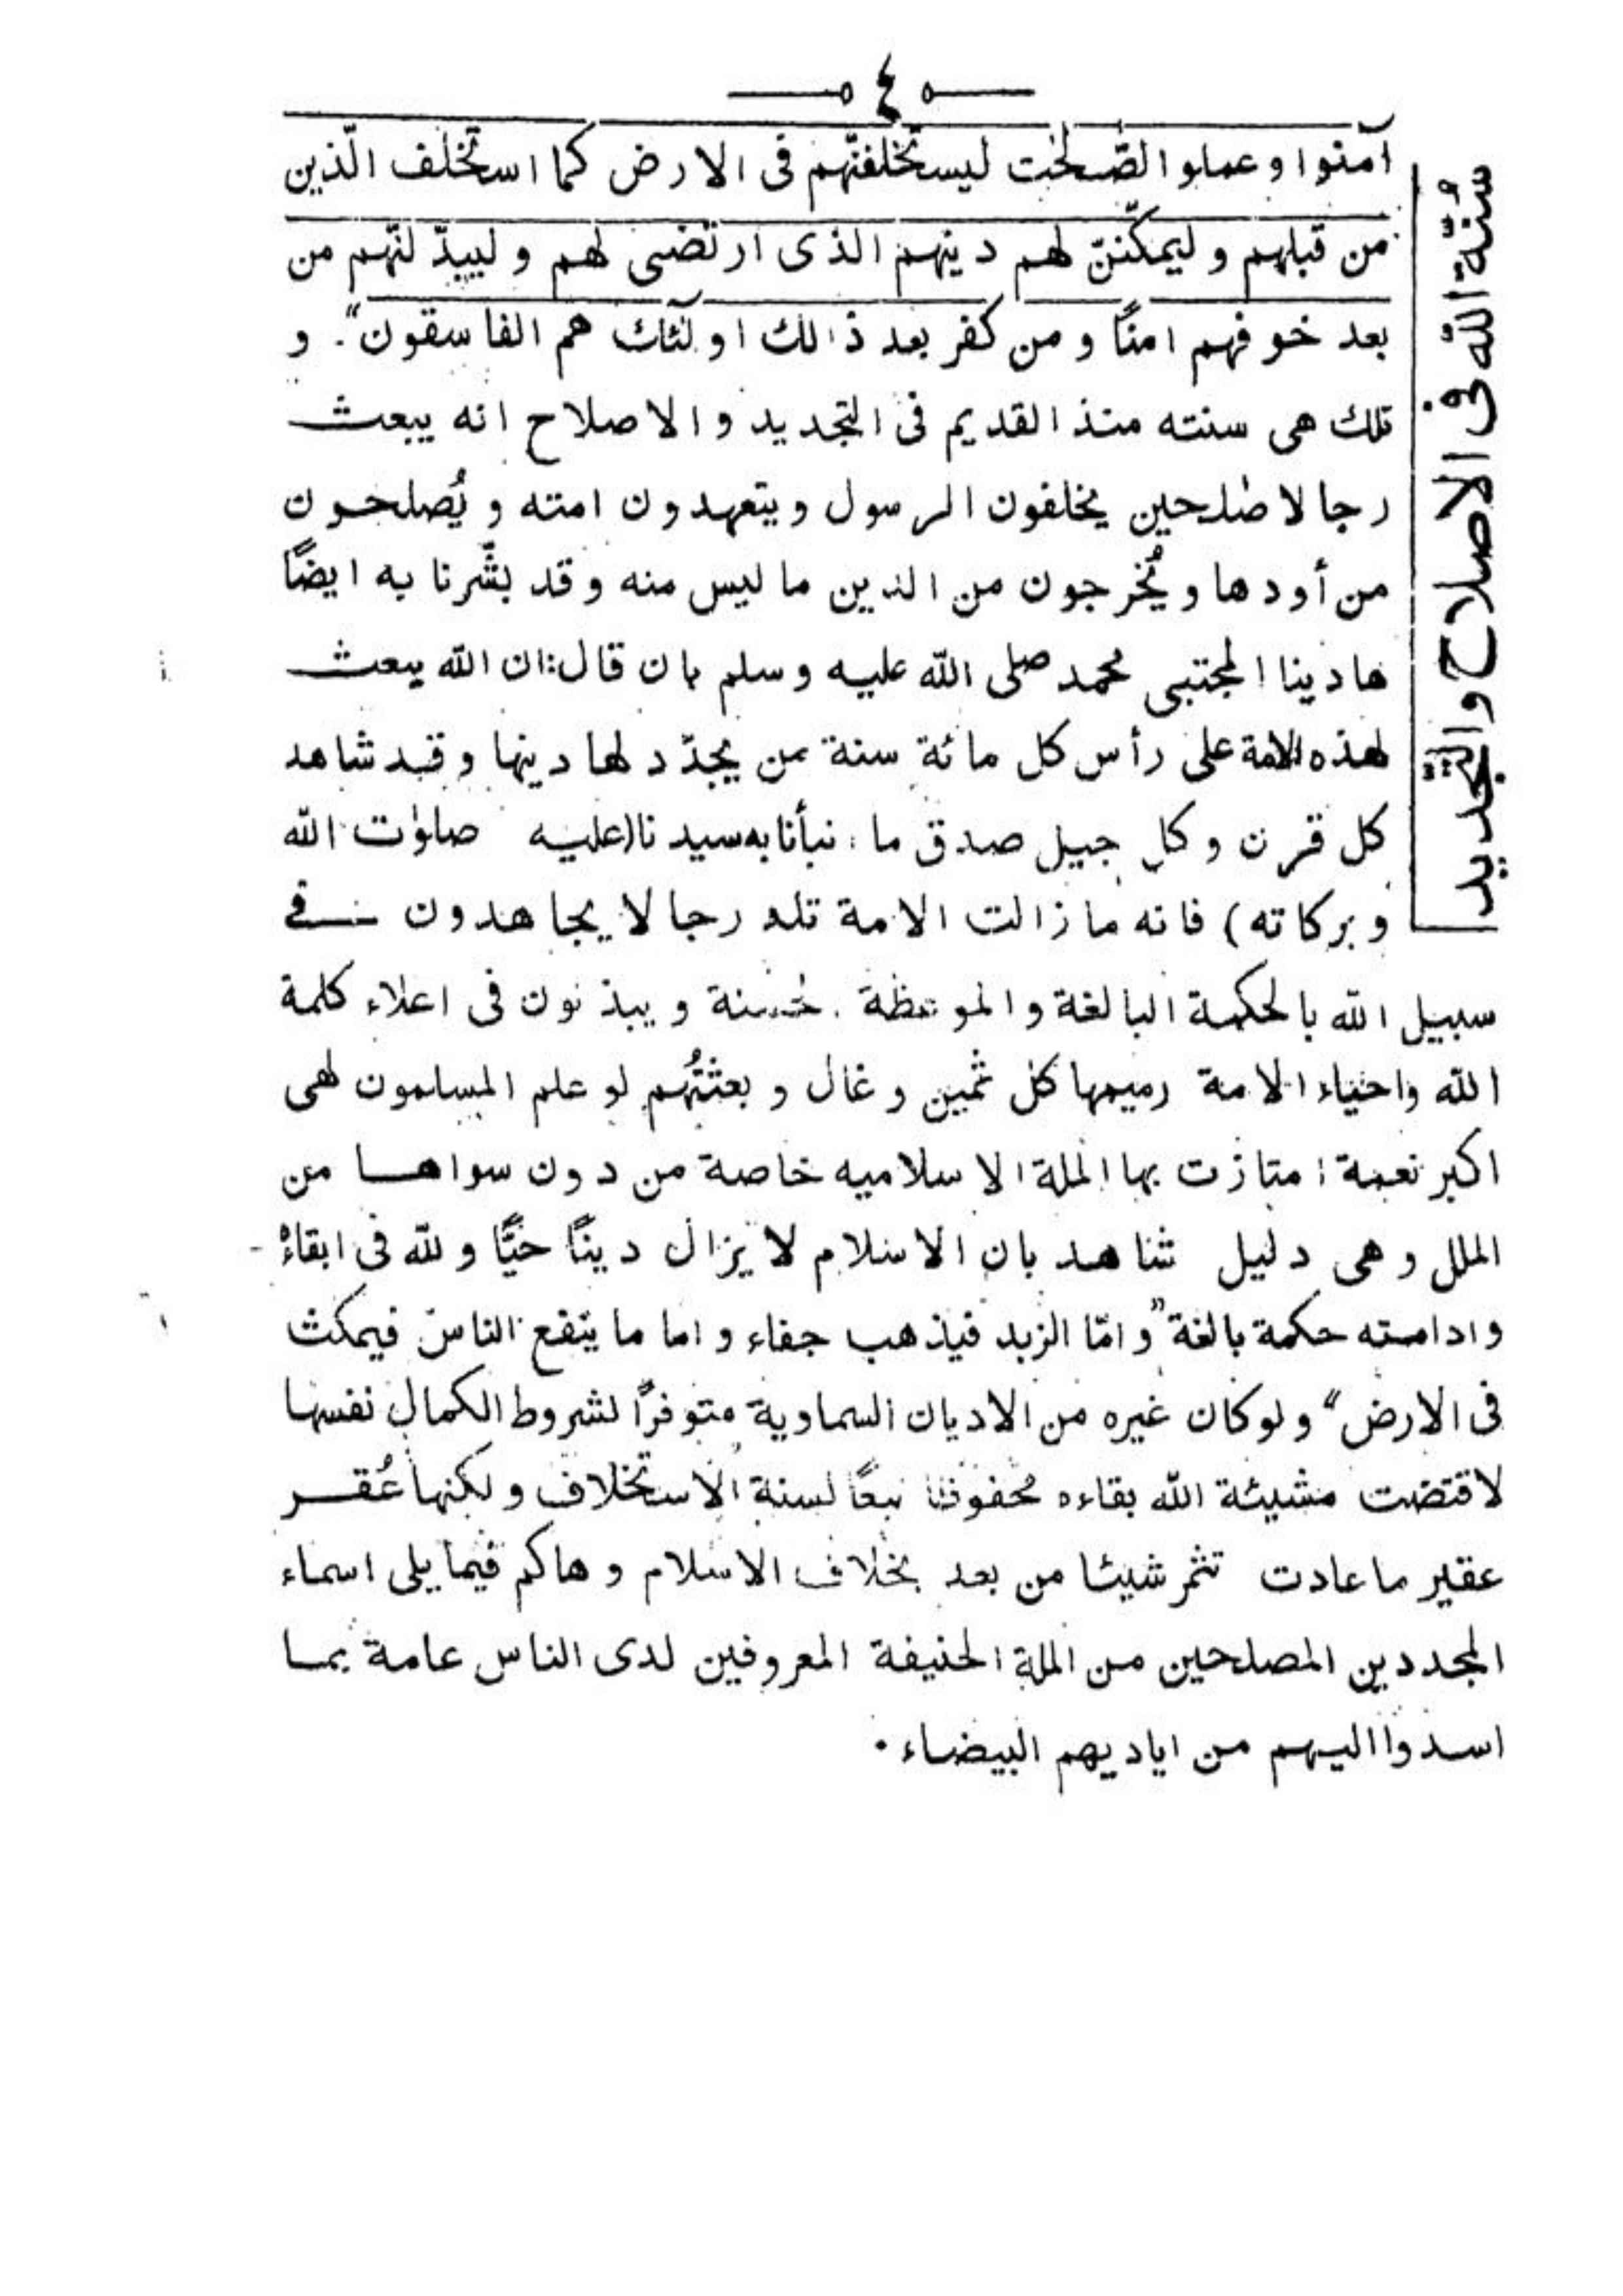 ٤
آمنوا وعملوا الصّٰلحٰت ليستخلفنّهم فى الارض كما استخلف الّذين
من قبلهم و ليمكّننّ لهم دينهم الذى ارتضى لهم و ليبدّلنّهم من
بعد خوفهم امنًا و من كفر بعد ذالك اولٓئك هم الفاسقون". و
تلك هى سنته منذ القديم فى التجديد و الاصلاح انه يبعث
رجالا صٰلحين يخلفون الرسول ويتعهدون امته و يُصلحون
من أودها و يُخرجون من الدين ما ليس منه وقد بشّرنا به ايضًا
هادينا المجتبى محمد صلى الله عليه وسلم بان قال: ان الله يبعث
لهذه الامة على رأس كل مائة سنة من يجدّد لها دينها وقد شاهد
كل قرن وكل جيل صدق ما نبأنا به سيدنا (عليه صلوٰت الله
وبركاته) فانه ما زالت الامة تلد رجالا يجاهدون فى
سبيل الله بالحكمة البالغة والموعظة حسنة و يبذلون فى اعلاء كلمة
الله واحياء الامة رميمها كل ثمين و غال و بعثتُهم لو علم المسلمون لهى
اكبر نعمة امتازت بها الملة الاسلاميه خاصة من دون سواها من
الملل وهى دليل شاهد بان الاسلام لا يزال دينًا حيًّا و لله فى ابقائه
وادامته حكمة بالغة "و امّا الزبد فيذهب جفاء و اما ما ينفع الناس فيمكث
فى الارض" ولو كان غيره من الاديان السماوية متوفرًا لشروط الكمال نفسها
لاقتضت مشيئة الله بقاءه محفوفا تبعًا لسنة الاستخلاف ولكنها عُقر
عقير ما عادت تثمر شيئا من بعد بخلاف الاسلام و هاكم فيما يلى اسماء
المجددين المصلحين من الملة الحنيفة المعروفين لدى الناس عامة بما
اسدوا اليهم من اياديهم البيضاء.
سُنّة اللّٰه فى الاصلاح والتّجديد